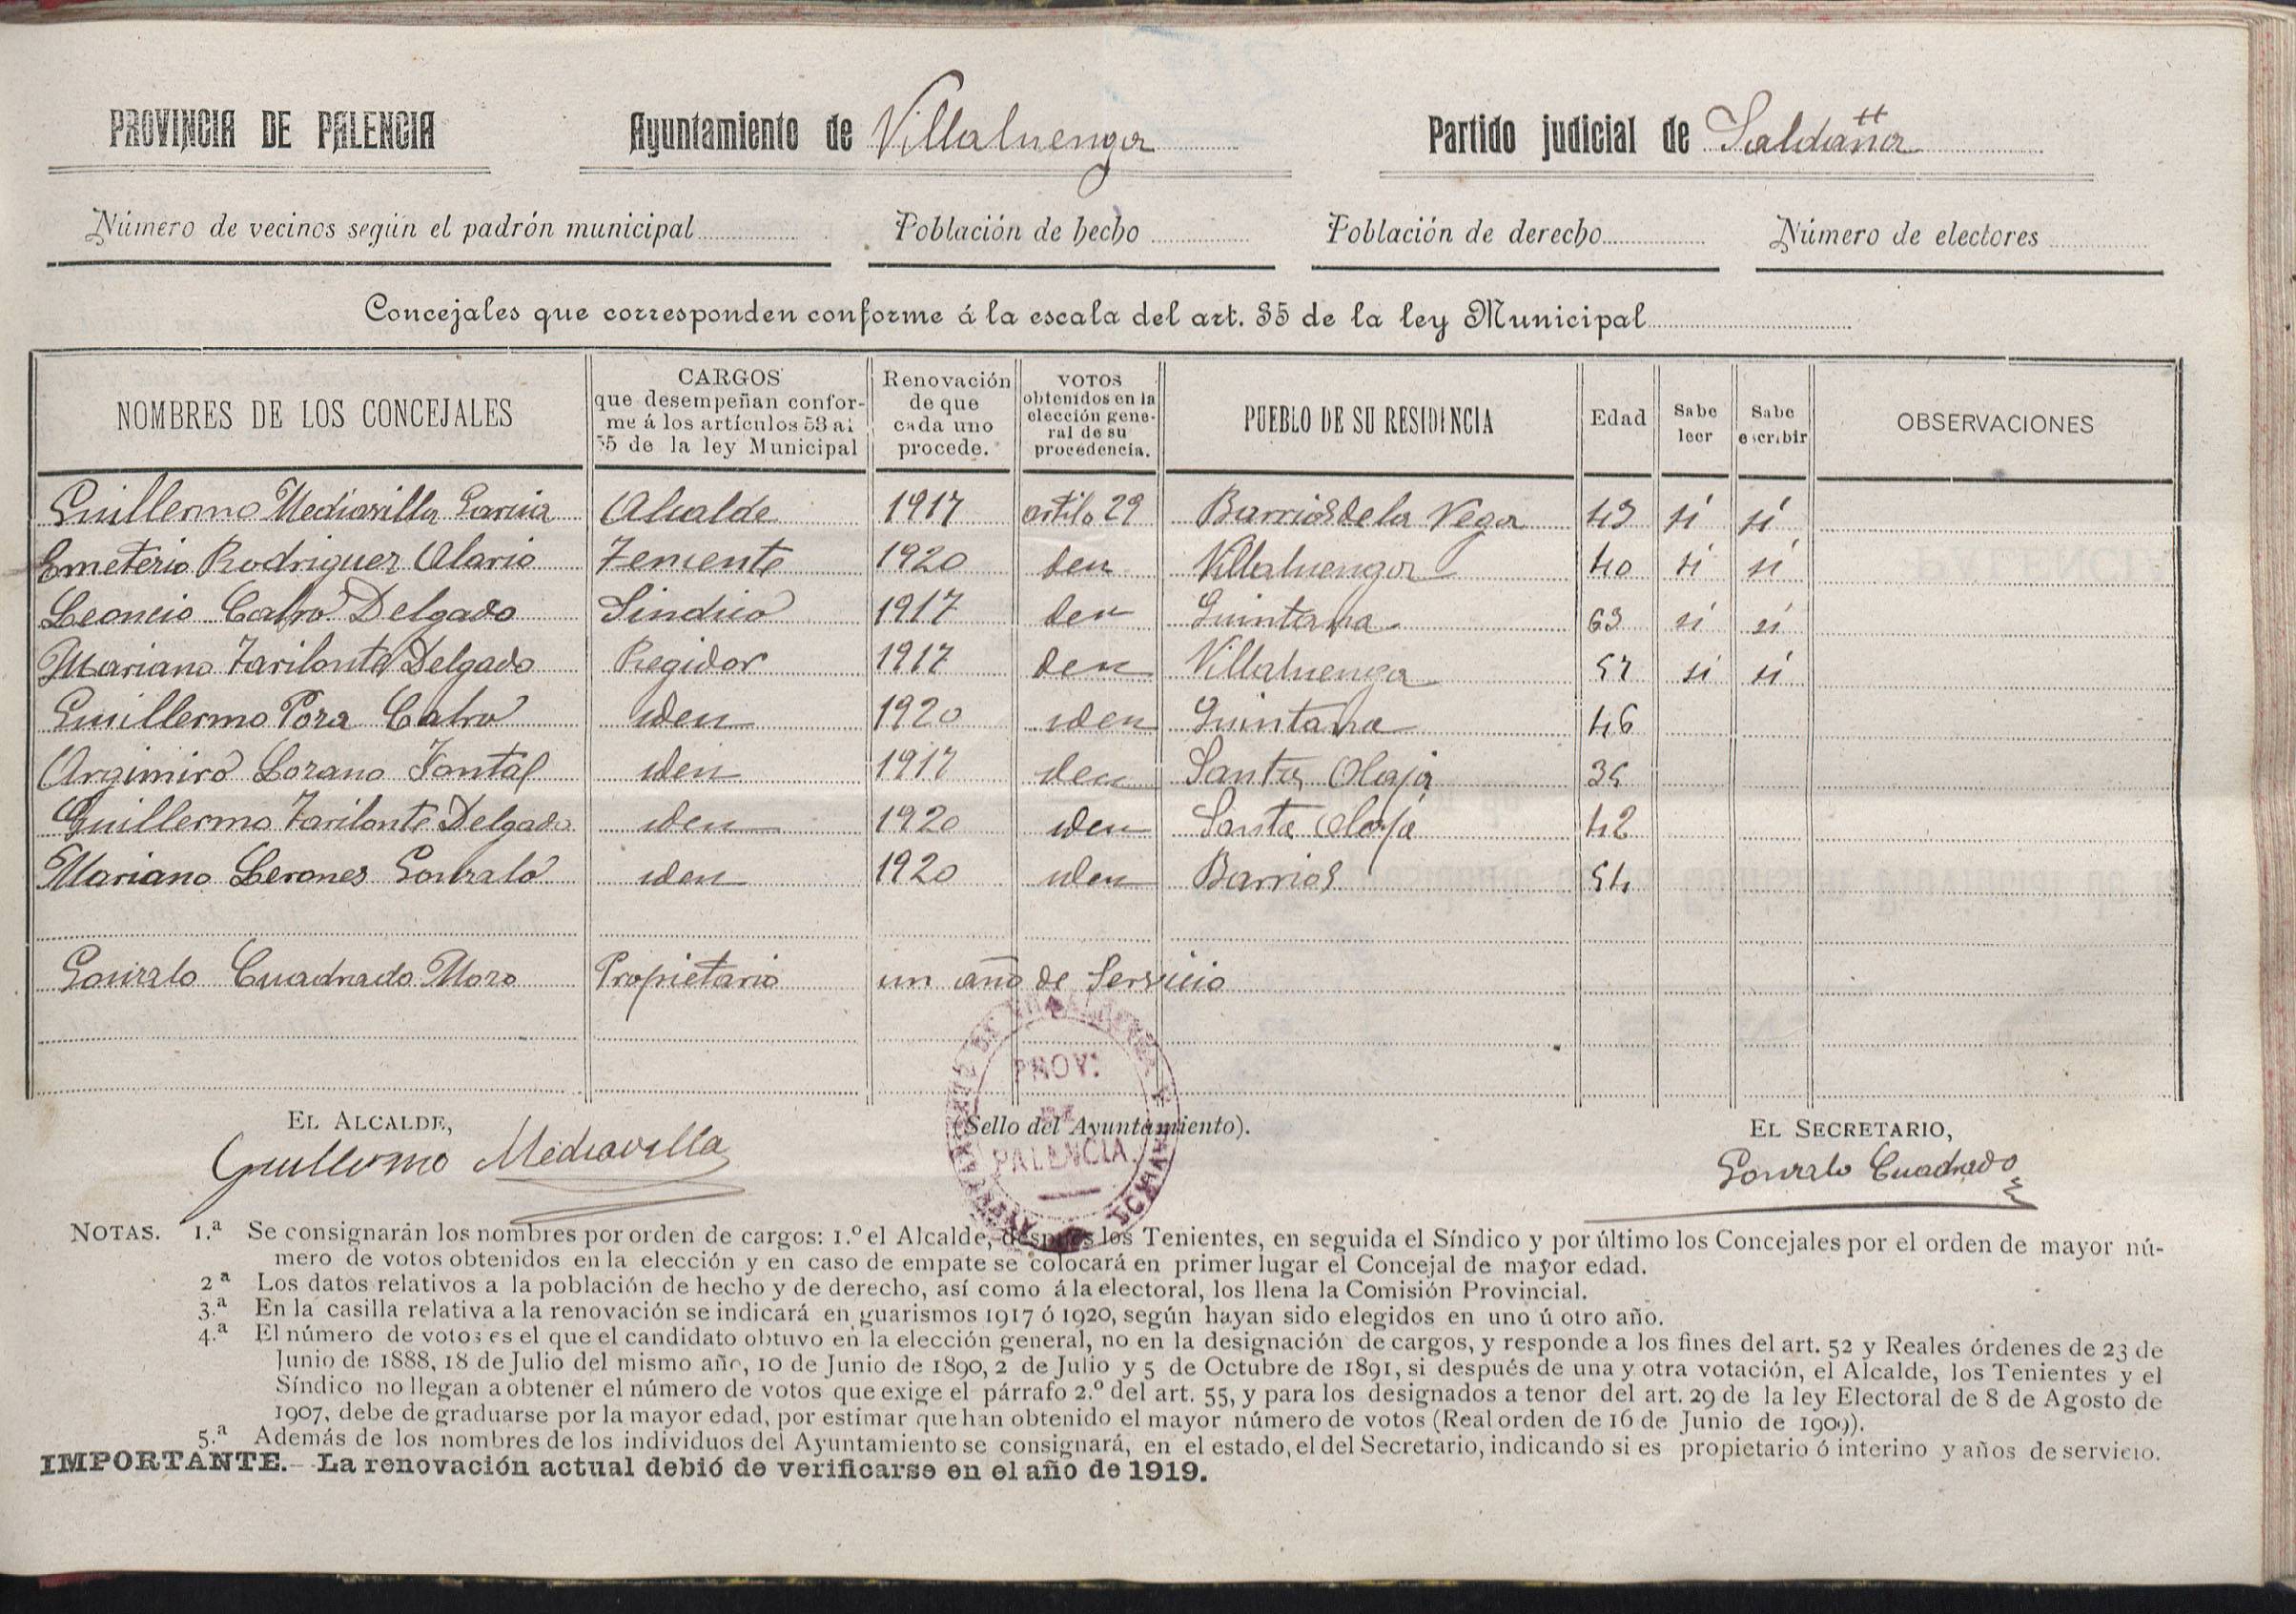 PROVINCIA DE PALENCIA Ayuntamiento de Villaluenga Partido judicial de Saldaña
Número de vecinos según el padrón municipal Población de hecho Población de derecho Número de electores
Concejales que corresponden conforme á la escala del art. 35 de la ley Municipal
NOMBRES DE LOS CONCEJALES
CARGOS
que desempeñan confor-
me á los artículos 53 al
55 de la ley Municipal
Renovación
de que
cada uno
procede.
VOTOS
obtenidos en la
elección gene-
ral de su
procedencia.
PUEBLO DE SU RESIDENCIA
Edad
Sabe
leer
Sabe
escribir
OBSERVACIONES
Guillermo Mediavilla Garcia Alcalde 1917 artilo 29 Barrios de la Vega 43 si si
Emeterio Rodriguez Alario Teniente 1920 den Villaluenga 40 si si
Leoncio Calvo Delgado Sindico 1917 den Quintana 63 si si
Mariano Tarilonte Delgado Regidor 1917 den Villaluenga 57 si si
Guillermo Poza Calvo iden 1920 iden Quintana 46
Argimiro Lozano Fontal iden 1917 iden Santa Olaja 35
Guillermo Tarilonte Delgado iden 1920 iden Santa Olaja 42
Mariano Lerones Gonzalo iden 1920 iden Barrios 54
Gonzalo Cuadrado Moro Propietario un año de Servicio
PROV.
DE
PALENCIA
EL ALCALDE, (Sello del Ayuntamiento). EL SECRETARIO,
Guillermo Mediavilla Gonzalo Cuadrado
NOTAS. 1.ª Se consignarán los nombres por orden de cargos: 1.º el Alcalde, después los Tenientes, en seguida el Síndico y por último los Concejales por el orden de mayor nú-
mero de votos obtenidos en la elección y en caso de empate se colocará en primer lugar el Concejal de mayor edad.
2ª Los datos relativos a la población de hecho y de derecho, así como á la electoral, los llena la Comisión Provincial.
3.ª En la casilla relativa a la renovación se indicará en guarismos 1917 ó 1920, según hayan sido elegidos en uno ú otro año.
4.ª El número de votos es el que el candidato obtuvo en la elección general, no en la designación de cargos, y responde a los fines del art. 52 y Reales órdenes de 23 de
Junio de 1888, 18 de Julio del mismo año, 10 de Junio de 1890, 2 de Julio y 5 de Octubre de 1891, si después de una y otra votación, el Alcalde, los Tenientes y el
Síndico no llegan a obtener el número de votos que exige el párrafo 2.º del art. 55, y para los designados a tenor del art. 29 de la ley Electoral de 8 de Agosto de
1907, debe de graduarse por la mayor edad, por estimar que han obtenido el mayor número de votos (Real orden de 16 de Junio de 1909).
5.ª Además de los nombres de los individuos del Ayuntamiento se consignará, en el estado, el del Secretario, indicando si es propietario ó interino y años de servicio.
IMPORTANTE.- La renovación actual debió de verificarse en el año de 1919.